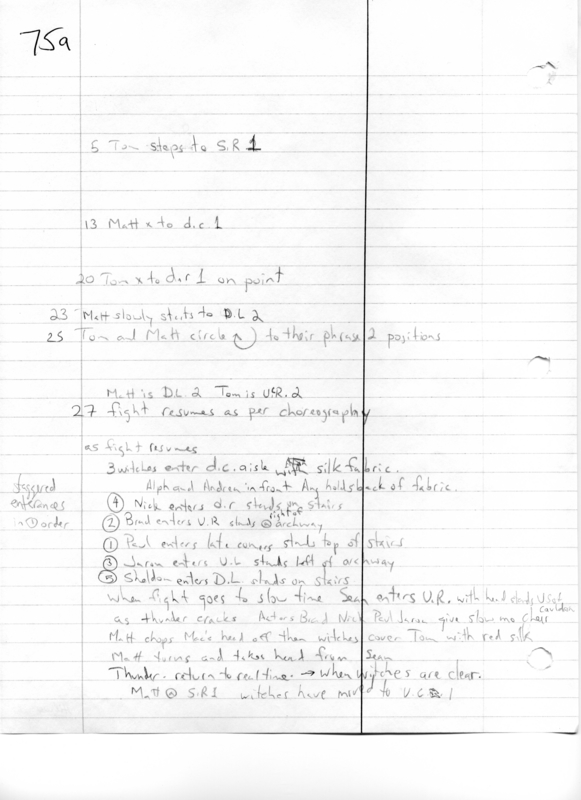 75a
5 Tom steps to S.R 1
13 Matt x to d.c 1
20 Tom x to d.r 1 on point
23 Matt slowly starts to D.L 2
25 Tom and Matt circle to their phrase 2 positions
Matt is D.L. 2 Tom is U.R. 2
27 fight resumes as per choreography
as fight resumes
3 witches enter d.c. aisle with silk fabric.
Alph and Andrea in front Any holds back of fabric.
staggered
enterences
in ① order
④ Nick enters d.r stands on stairs
② Brad enters U.R stads @ right of archway
① Paul enters late comers stands top of stairs
③ Jaron enters U.L stands left of archway
⑤ Sheldon enters D.L stands on stairs
When fight goes to slow time Sean enters U.R. with head stands US of cauldron
as thunder cracks Actors Brad Nick Paul Jaron give slow mo cheer
Matt chops Mac's head off then witches cover Tom with red silk
Matt turns and takes head from Sean
Thunder. return to realtime. → when witches are clear.
Matt @ S.R 1 witches have moved to U.C 1